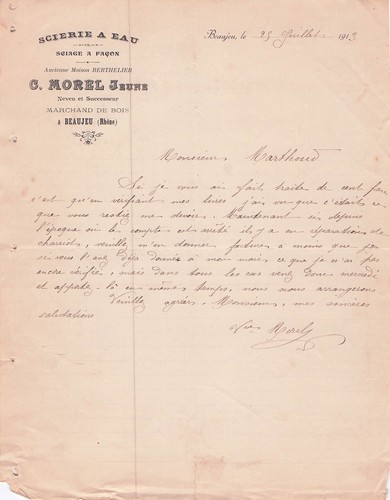 SCIERIE A EAU
SCIAGE A FAÇON
Ancienne Maison BERTHELIER
C. MOREL JEUNE
Neveu et Successeur
MARCHAND DE BOIS
à BEAUJEU (Rhône)
Beaujeu, le 25 Juillet 1913
Monsieur Marthoud
Si je vous ai fait traite de cent fr
c'est qu'en verifiant mes livres j'ai vu que c'était ce
que vous restiez me devoir. Maintenant si depuis
l'époque où le compte est arrêté il y a eu réparations de
charriots, veuillez m'en donner facture à moins que
vous l'ayez déjà donnée à mon mari, ce que je n'ai pas
encore vérifié, mais dans tous les cas venez donc mercredi
et apportez là en même temps, nous nous arrangerons
Veuillez agréer, Monsieur, mes sincères
salutations
Vve Morel